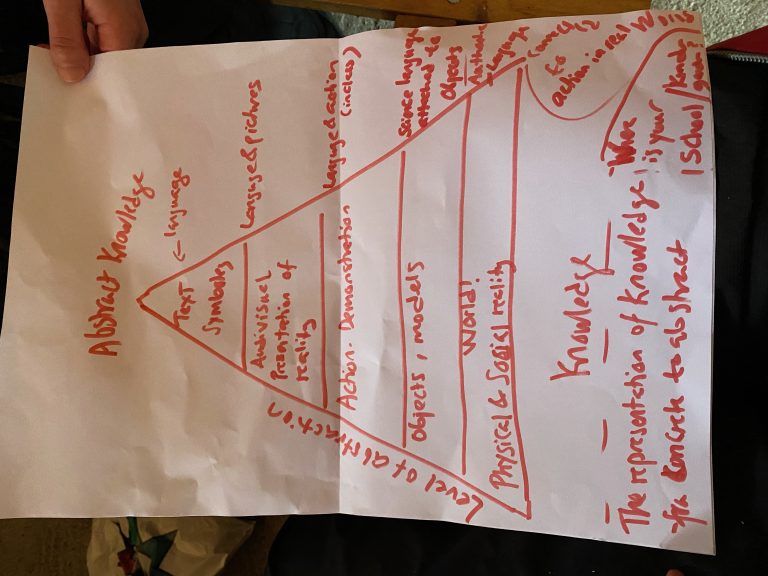 Abstract Knowledge
← language
Text
Symbols
Language & pictures
Audivisual
Presentation of
reality
Language & action
(in class)
Action. Demonstration
Science language
attached to
Objects
Objects, models
language
World!
Physical & Social reality
Level of abstraction
to
action in real
Knowledge
The representation of Knowledge,
Concrete to abstract
Where
is your
School /